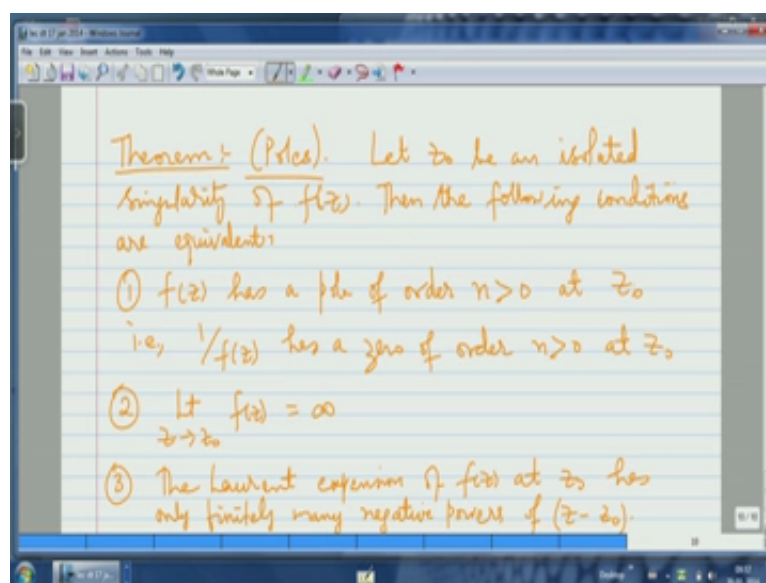 File Edit View Insert Actions Tools Help
Theorem:- (Poles). Let z₀ be an isolated
singularity of f(z). Then the following conditions
are equivalent:
① f(z) has a pole of order n>0 at z₀
i.e., 1/f(z) has a zero of order n>0 at z₀
② Lt f(z) = ∞
z→z₀
③ The Laurent expansion of f(z) at z₀ has
only finitely many negative powers of (z-z₀).